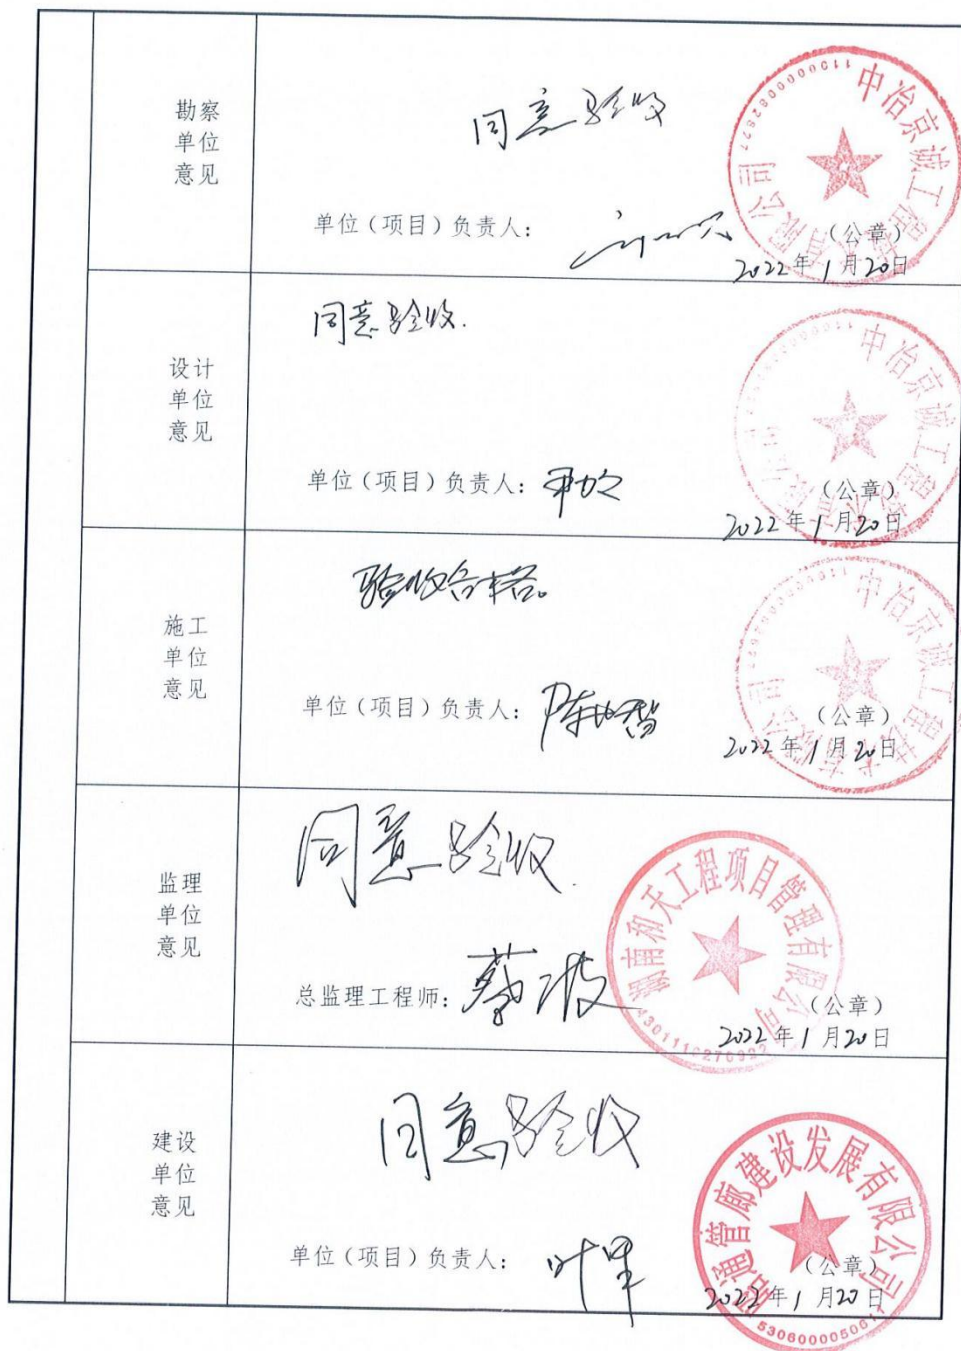 勘察
单位
意见
同意验收
单位（项目）负责人：
（公章）
2022年1月20日
中冶京诚工程技术有限公司
设计
单位
意见
同意验收.
单位（项目）负责人：
（公章）
2022年1月20日
中冶京诚工程技术有限公司
施工
单位
意见
验收合格。
单位（项目）负责人：
（公章）
2022年1月20日
中冶京诚工程技术有限公司
监理
单位
意见
同意验收.
总监理工程师：蔡波
（公章）
2022年1月20日
湖南和天工程项目管理有限公司
建设
单位
意见
同意验收
单位（项目）负责人：
（公章）
2022年1月20日
昭通管廊建设发展有限公司